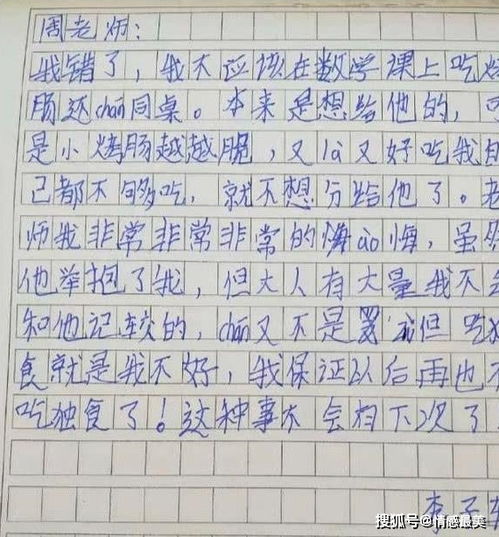 周老师:
我错了,我不应该在数学课上吃烤
肠还chan同桌。本来是想给他的,可
是小烤肠越越脆,又là又好吃我自
己都不够吃,就不想分给他了。老
师我非常非常非常的懊ào悔,虽
他举抱了我,但大人有大量我不
和他记较的,chan又不是罪 但吃
食就是我不好,我保证以后再也不
吃独食了!这种事不会有下次了
李子
搜狐号@情感最美